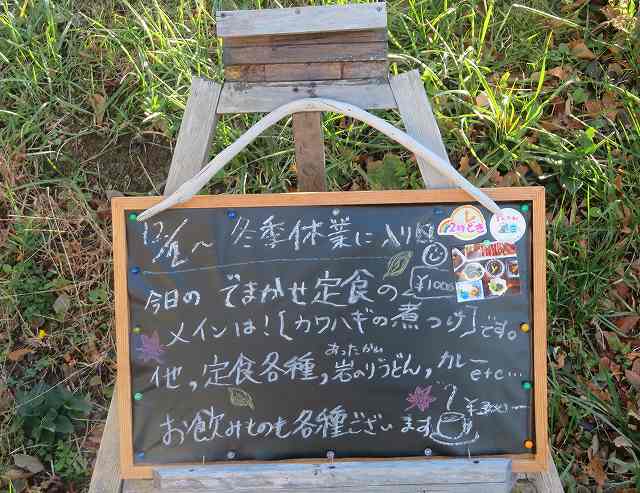 12/1〜 冬季休業に入りm
今日の でまかせ定食の ¥1000
メインは！［カワハギの煮つけ］です。
他、定食各種、岩のりうどん、カレー etc…
あったかい
お飲みものも各種ございます ¥300〜